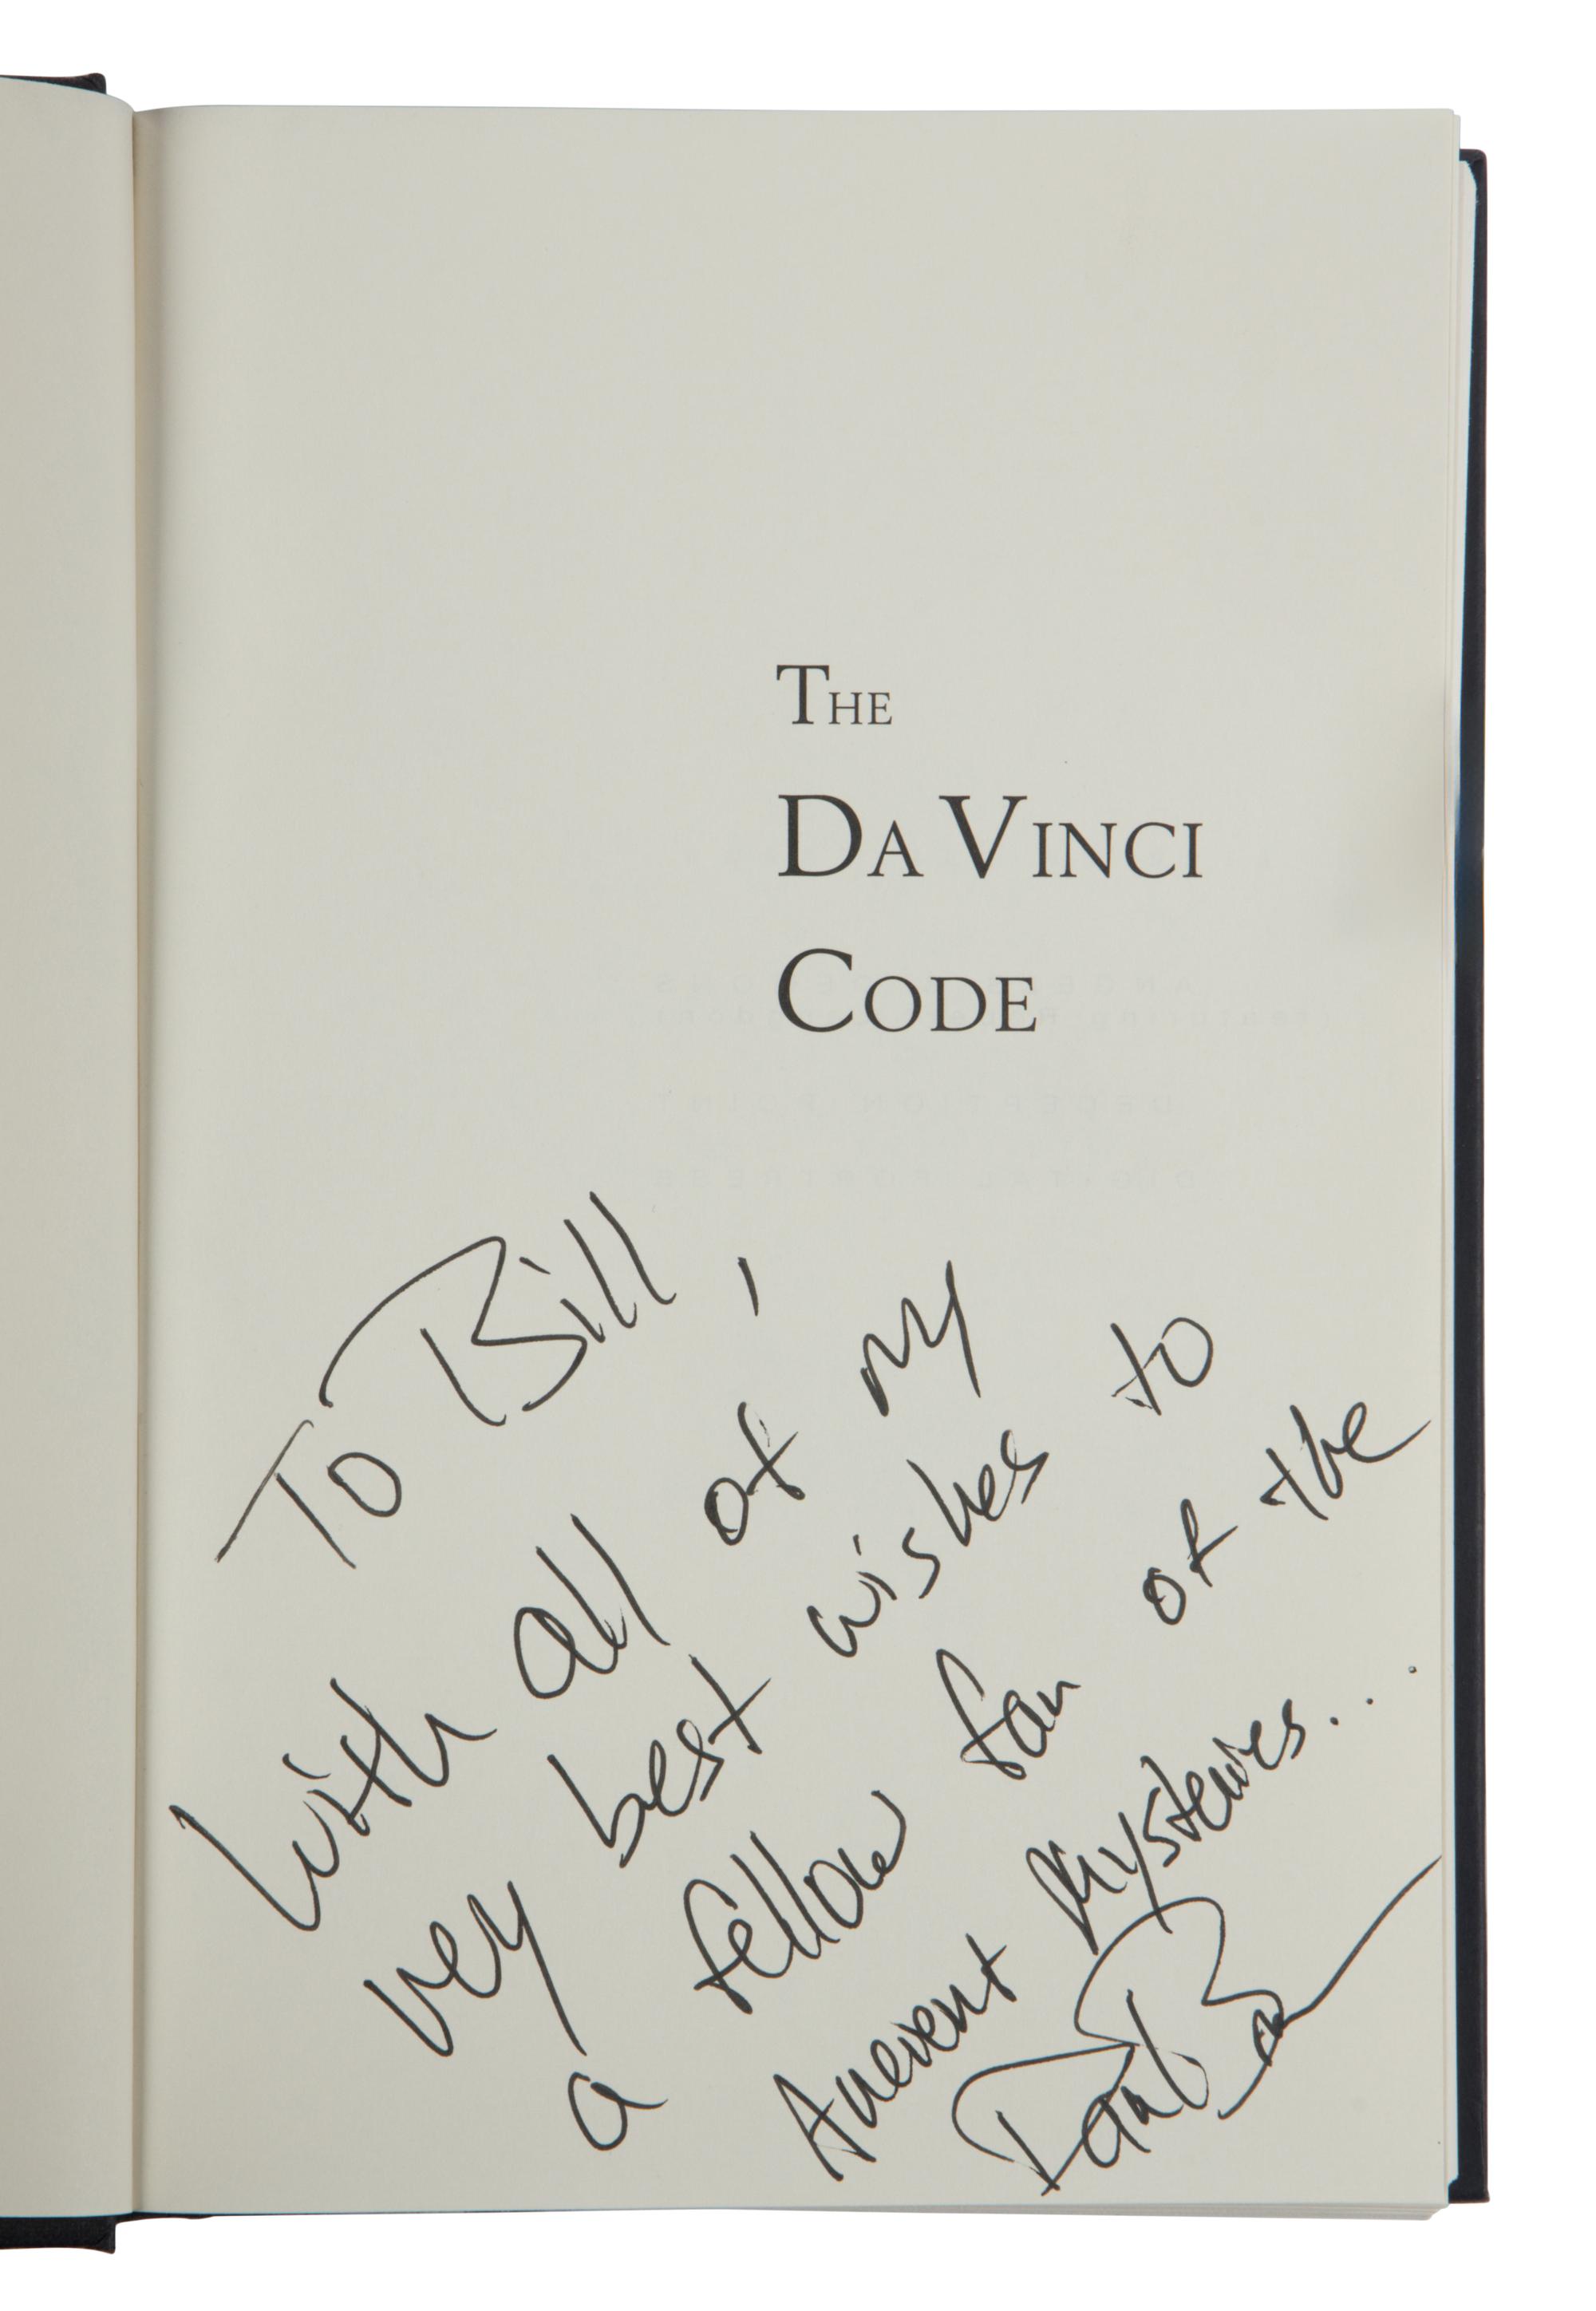 THE
DA VINCI
CODE
To Bill,
With all of my
very best wishes to
a fellow fan of the
Ancient Mysteries...
Dan B